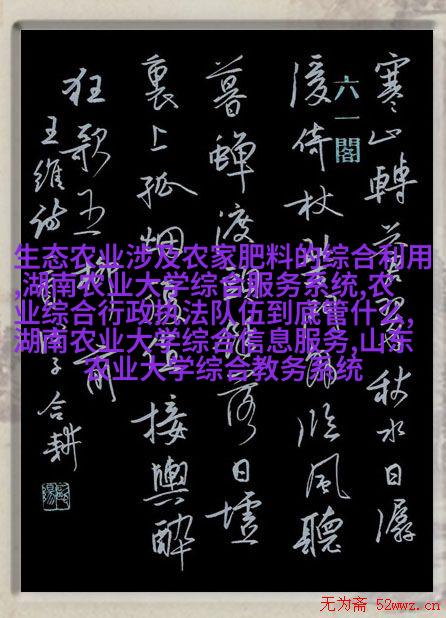 寒山轉蒼翠秋水日潺
六一閣
湲倚杖柴門外臨風聽
暮蟬渡頭餘落日墟
裏上孤烟復值接輿醉
狂歌五柳前
王維詩
子合耕
生态农业涉及农家肥料的综合利用
,湖南农业大学综合服务系统,农
业综合行政执法队伍到底管什么,
湖南农业大学综合信息服务,山东
农业大学综合教务系统
无为斋 52wwz.cn